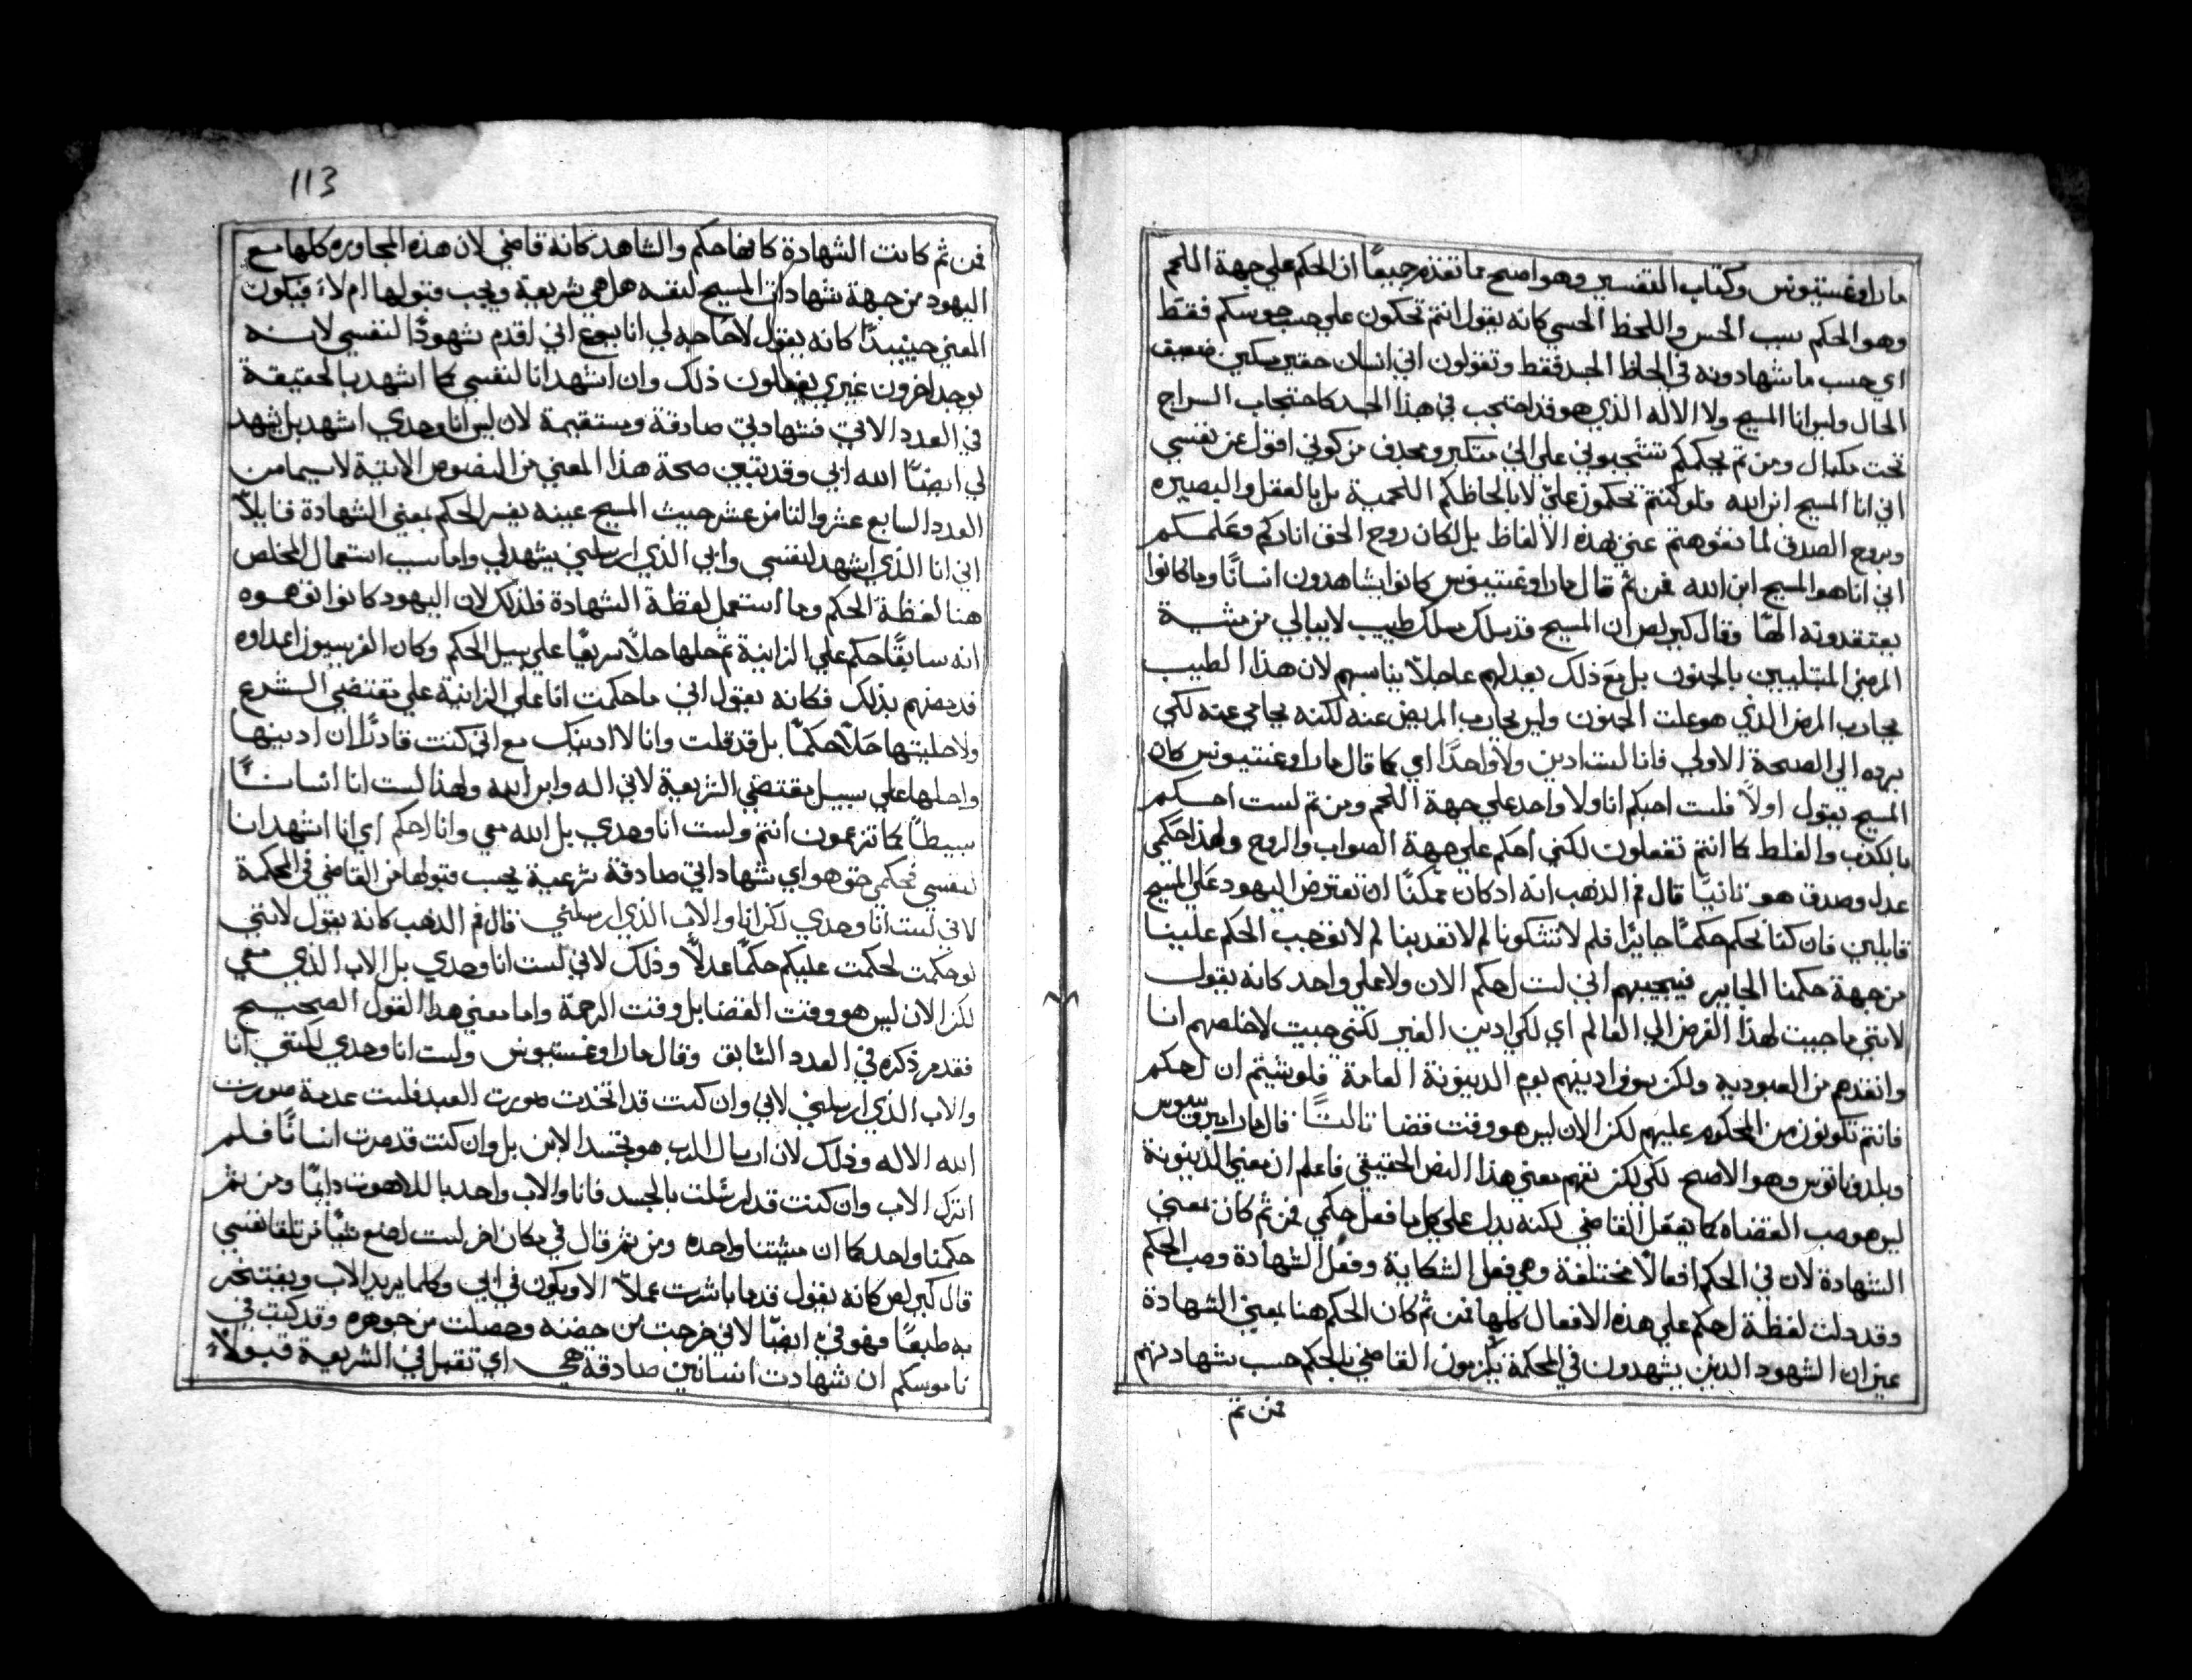 مار اوغستينوس وكتاب التفسير وهو اصح مما تقدم جميعًا ان الحكم علي جهة اللحم
وهو الحكم بسبب الحس واللحظ الحسي كانه يقول انتم تحكون علي حسب حوسكم فقط
اي حسب ما شهادونه في الحاظ الجسد فقط وتقولون اني انسان حقير مسكين ضعيف
الحال وليس انا المسيح ولا الاله الذي هو قد احتجب في هذا الجسد كاحتجاب السراج
تحت مكيال ومن ثم بحكمكم تشجبوني علي اني متكبر ومجدف من كوني اقول عن نفسي
اني انا المسيح ابن الله فلو كنتم تحكمون علي لا بالحاظكم اللحمية بل بالعقل والبصيره
وبروح الصدق لما تفوهتم عني بهذه الالفاظ بل لكان روح الحق اناركم وعلمكم
اني انا هو المسيح ابن الله فمن ثم قال مار اوغستينوس كانوا يشاهدون انسانًا وما كانوا
يعتقدونه الهًا وقال كيرلص ان المسيح قد سلك مسلك طبيب لا يبالي من مشية
المرضي المبتليين بالجنون بل مع ذلك يعد لهم علاجلاً يناسبهم لان هذا الطبيب
يحارب المرض الذي هو علت الجنون وليس يحارب المريض عينه لكنه يحامي عنه لكي
يرده الي الصحة الاولي فانا لست ادين ولا واحدًا اي كما قال مار اوغستينوس كان
المسيح يقول اولاً فلست احكم انا ولا واحد علي جهة اللحم ومن ثم لست احكم
بالكذب والغلط كما انتم تفعلون لكني احكم علي جهة الصواب والروح ولهذا حكمي
عدل وصدق هو ثانيًا قال فم الذهب انه اذ كان ممكنًا ان تعترض اليهود علي المسيح
قايلين فان كنا نحكم حكمًا جايرًا فلم لا تشكونا لم لا تقدينا لم لا توجب الحكم علينا
من جهة حكمنا الجاير فيجيبهم اني لست احكم الان ولا علي واحد كانه يقول
لانني ما جيت لهذا الغرض الي العالم اي لكي ادين الغير لكنني جيت لاخلصهم انا
وانقذهم من العبوديه ولكن سوف ادينهم يوم الدينونة العامة فلو شيتم ان احكم
فانتم تكونون من المحكوم عليهم لكن الان ليس هو وقت قضا ثالثًا قال مار امبروسيوس
وبلدوناتوس وهو الاصح لكي لكن نفهم معني هذا النص الحقيقي فاعلم ان معني الدينونة
ليس هو صب القضاه كما يفعل القاضي لكنه يدل علي كل ما فعل حكمي فمن ثم كان معني
الشهادة لان في الحكم افعالاً مختلفة وهي فعل الشكاية وفعل الشهادة وصب الحكم
وقد دلت لفظة احكم علي هذه الافعال كلها فمن ثم كان الحكم هنا بمعني الشهادة
عير ان الشهود الذين يشهدون في المحكمة يلزمون القاضي بالحكم حسب شهادتهم
فمن ثم
113
فمن ثم كانت الشهادة كانها حكم والشاهد كانه قاضي لان هذه المحاوره كلها مع
اليهود من جهة شهادات المسيح لنفسه هل هي شريعية ويجب قبولها ام لا فيكون
المعني حينيدًا كانه يقول لا حاجه لي انا يسوع اني اقدم شهودًا لنفسي لانه
يوجد اخرون غيري يفعلون ذلك وان اشهد انا لنفسي كما اشهد بالحقيقة
في العدد الاتي فشهادتي صادقة ومستقيمة لان ليس انا وحدي اشهد بل يشهد
لي ايضًا الله ابي وقد يتبين صحة هذا المعني من النصوص الاتية لا سيما من
العدد السابع عشر والثامن عشر حيث المسيح عينه يفسر الحكم بمعني الشهادة قايلاً
اني انا الذي اشهد لنفسي وابي الذي ارسلني يشهد لي واما سبب استعمال المخلص
هنا لفظة الحكم وما استعمل لفظة الشهادة فلذلك لان اليهود كانوا اتهموه
انه سابقًا حكم علي الزانية ثم حلها حلاً سريعًا علي سبيل الحكم وكان الفريسيون اعداوه
قد بذلك فكانه يقول اني ما حكمت انا علي الزانية علي مقتضي الشرع
ولا حليتها حلاً حكمًا بل قد قلت وانا لا ادينك مع اني كنت قادرًا ان ادينها
واحلها علي سبيل مقتضي الشريعية لاني اله وابن الله ولهذا لست انا انسانًا
بسيطًا كما تزعمون انتم ولست انا وحدي بل الله معي وانا احكم اي انا اشهد انا
لنفسي فحكمي حق هو اي شهاداتي صادقة شرعية يجب قبولها من القاضي في المحكمة
لاني لست انا وحدي لكن انا والاب الذي ارسلني قال فم الذهب كانه يقول لانني
لو حكمت لحكمت عليكم حكمًا عدلاً وذلك لاني لست انا وحدي بل الاب الذي معي
لكن الان ليس هو وقت القضا بل وقت الرحمة واما معني هذا القول الصحيح
فقد مر ذكره في العدد السابق وقال مار اوغستينوس ولست انا وحدي لكنني انا
والاب الذي ارسلني لاني وان كنت قد اتخدت صورت العبد فلست عدمة صورت
الله الاله وذلك لان ارسال الرب هو تجسد الابن بل وان كنت قد صرت انسانًا فلم
اترك الاب وان كنت قد ارسلت بالجسد فانا والاب واحد باللاهوت دايمًا ومن ثم
حكمنا واحد كما ان مشيتنا واحده ومن ثم قال في مكان اخر لست اصنع شيًا من تلقا نفسي
قال كيرلص كانه يقول قد ما باشرت عملاً الا ويكون في ابي وكلما يريد الاب ويفتخر
به طبعًا فهو في ايضًا لاني خرجت من حضنه وحصلت من جوهره وقد كتب في
ناموسكم ان شهادت انسانين صادقة هي اي تقبل في الشريعة قبولاً